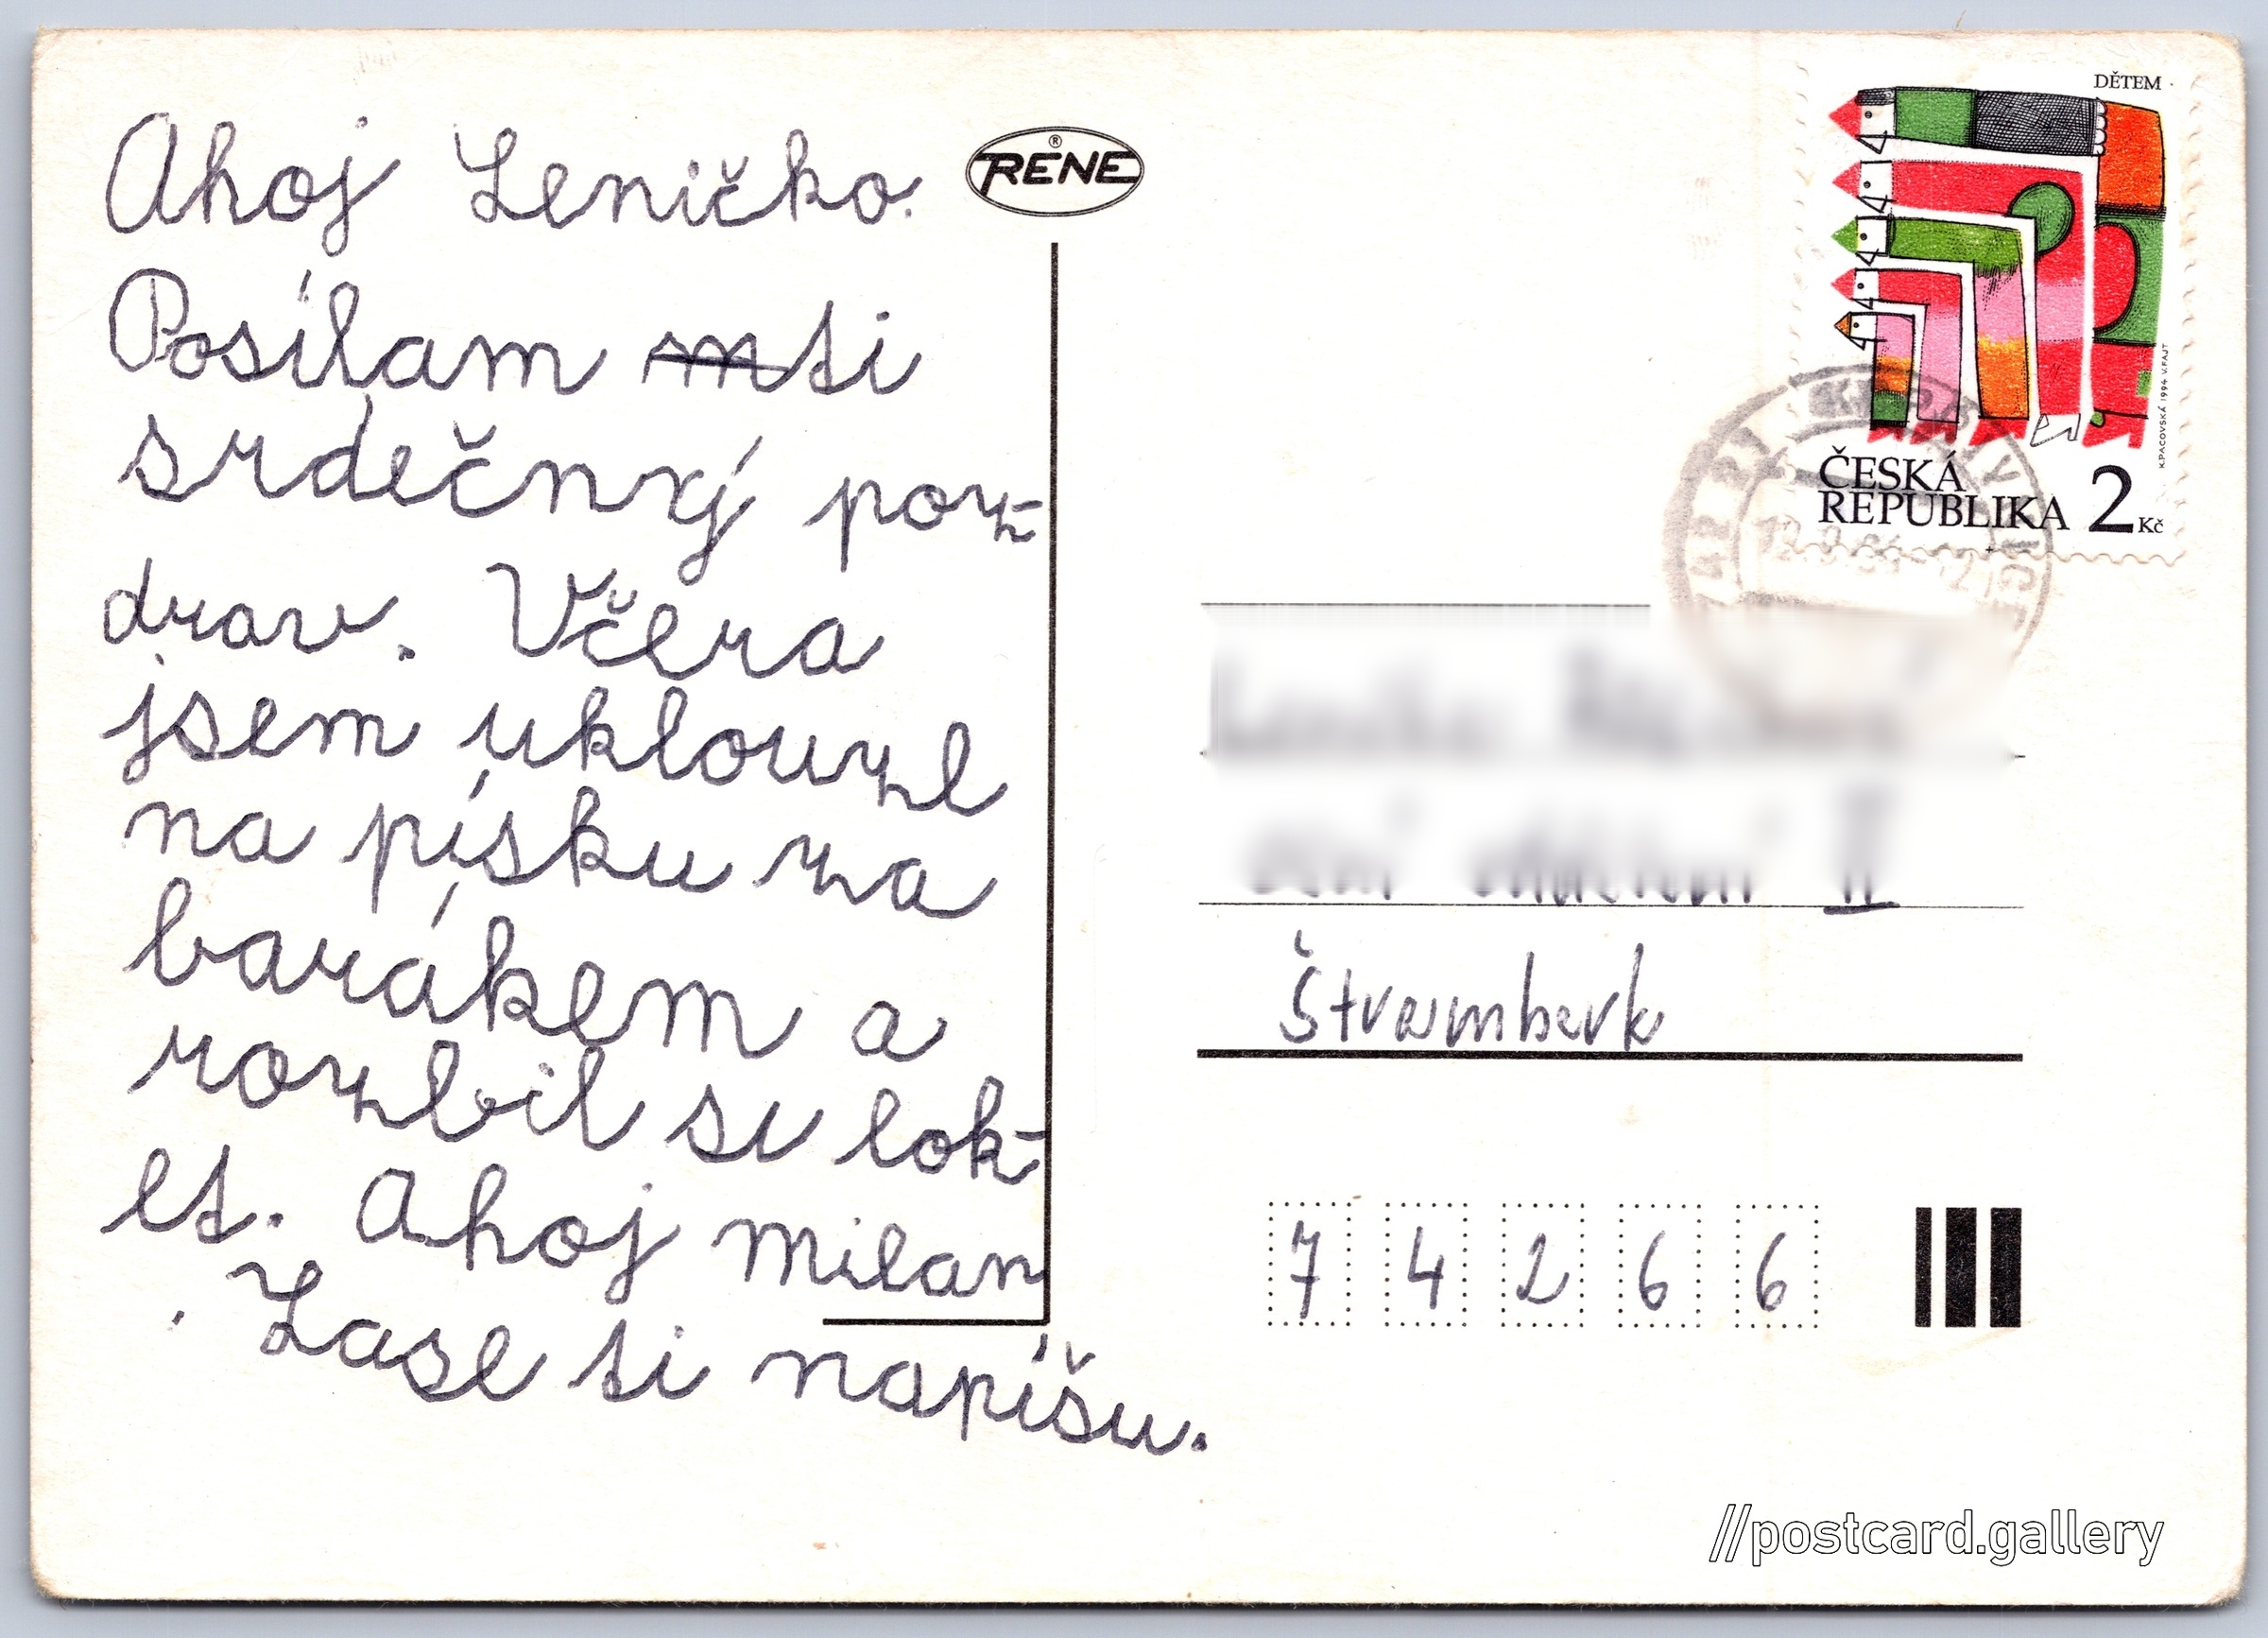 Ahoj Leničko.
RENE
®
Posílam ~~m~~ti
srdečný poz-
drav. Včera
jsem uklouzl
na písku za
barákem a
rozbil si lok-
et. Ahoj Milan
Zase ti napíšu.
DĚTEM
K.PACOVSKÁ 1994 V.FAJT
ČESKÁ
REPUBLIKA 2 Kč
II
Štramberk
7 4 2 6 6
//postcard.gallery